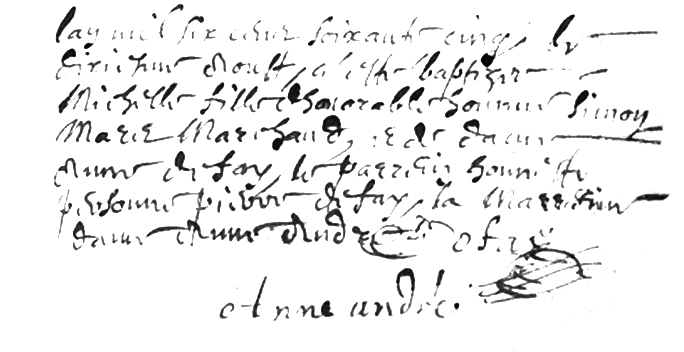 lan mil six cens soixante cinq, le
dixiesme doust, a este baptizee
Michelle fille dhonorable homme Simon
Marie Marchand, et de dame
Anne de fay, le parrein honneste
personne pierre de fay, la Marreine
dame Anne André
Anne andré.